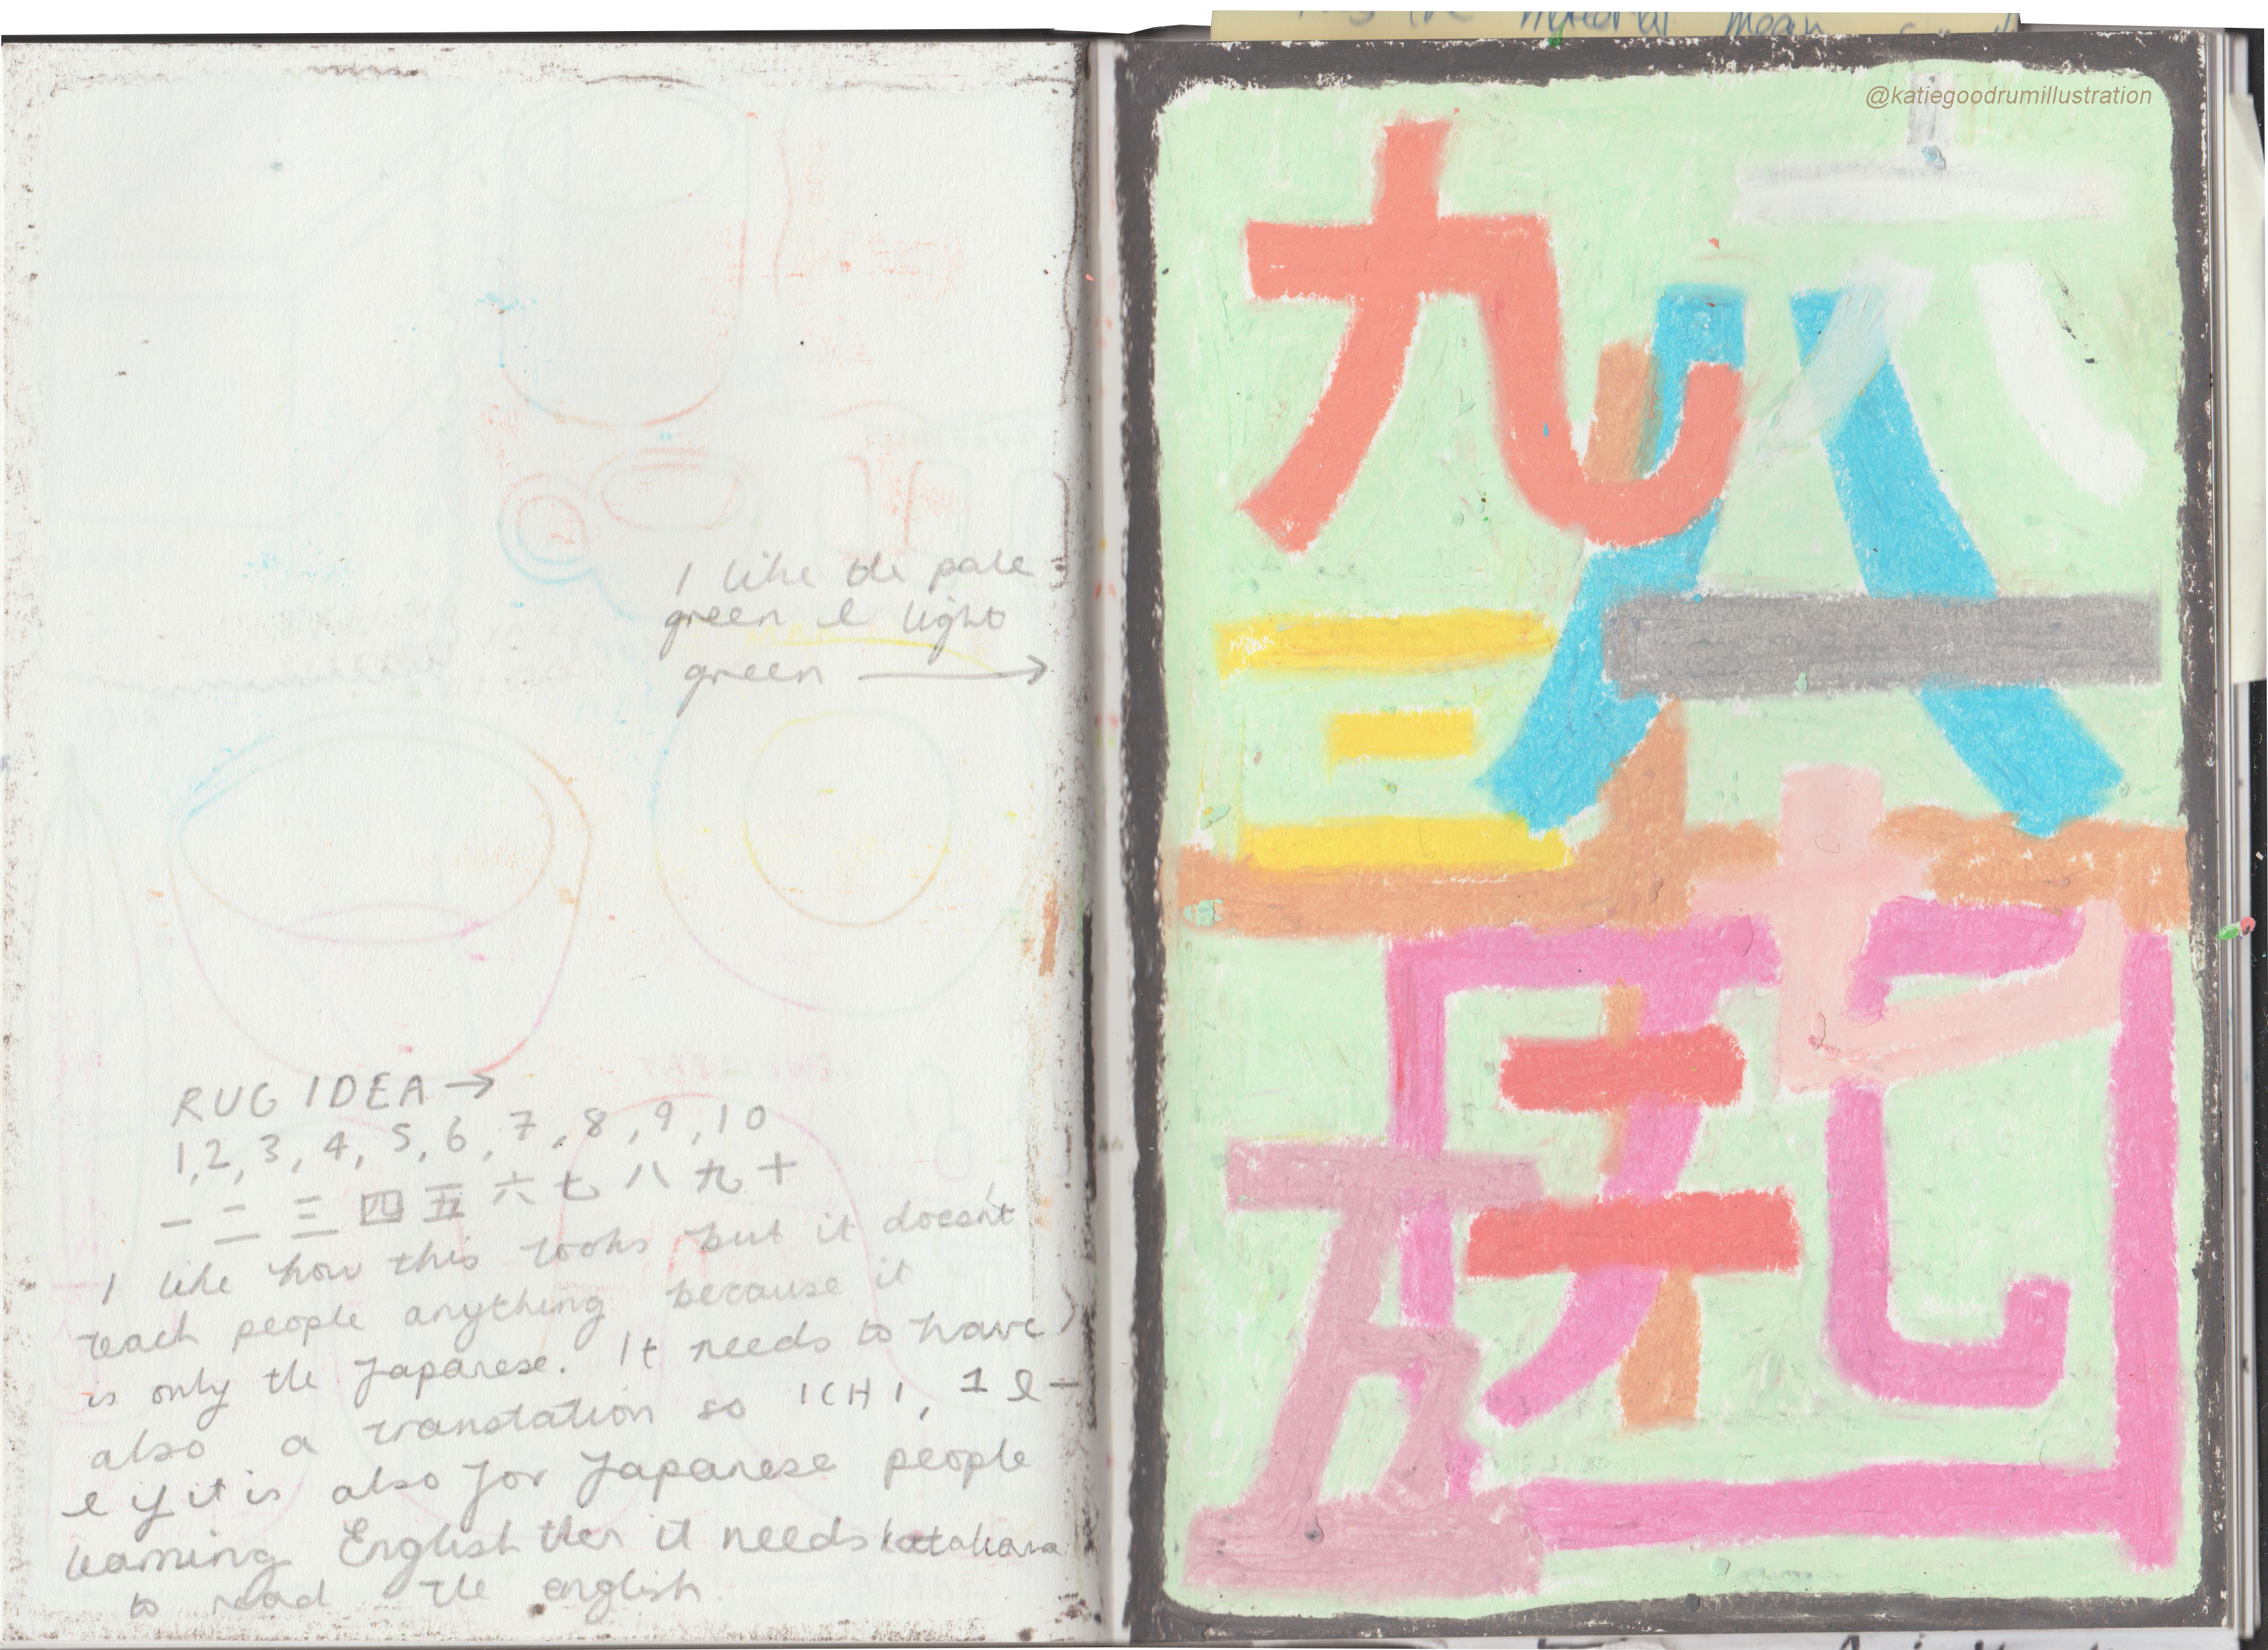 I like the pale
green & light
green →
RUG IDEA →
1, 2, 3, 4, 5, 6, 7, 8, 9, 10
一 二 三 四 五 六 七 八 九 十
I like how this looks but it doesn't
teach people anything because it
is only the Japanese. It needs to have
also a translation so ICHI, 1 & 一
& if it is also for Japanese people
learning English then it needs katakana
to read the english
@katiegoodrumillustration
九
六
八
三
一
十
七
四
二
五